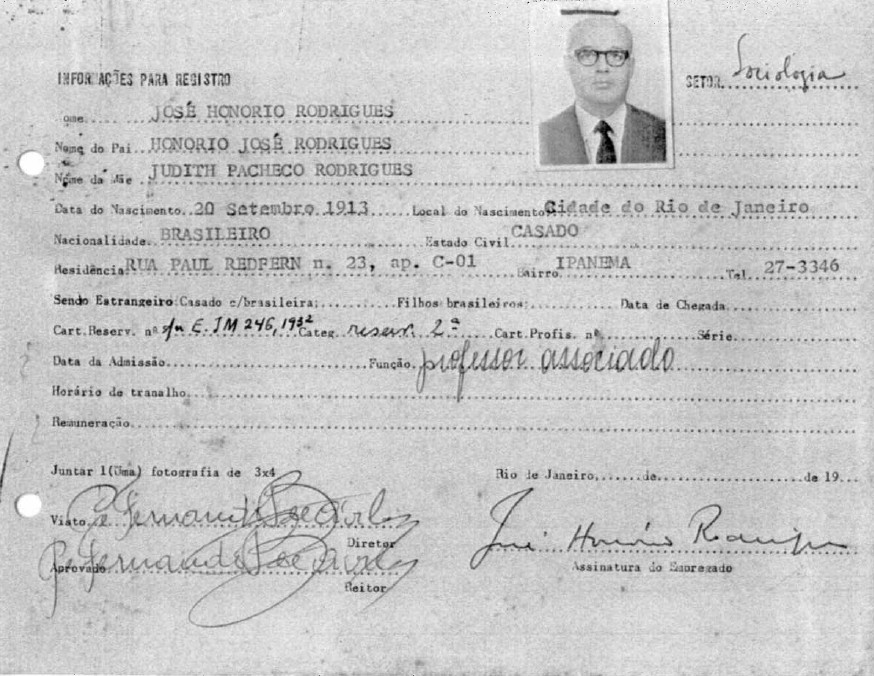 INFORMAÇÕES PARA REGISTRO
SETOR. Sociologia
ome JOSÉ HONORIO RODRIGUES
Nome do Pai HONORIO JOSÉ RODRIGUES
Nome da Mãe JUDITH PACHECO RODRIGUES
Data do Nascimento 20 Setembro 1913 Local do Nascimento Cidade do Rio de Janeiro
Nacionalidade BRASILEIRO Estado Civil CASADO
Residência RUA PAUL REDFERN n. 23, ap. C-01 Bairro IPANEMA Tel. 27-3346
Sendo Estrangeiro: Casado c/brasileira; Filhos brasileiros: Data de Chegada
Cart.Reserv. nº E. JM 246, 1932 Categ. reserv. 2ª Cart.Profis. nº Série
Data da Admissão Função professor associado
Horário de tranalho
Remuneração
Juntar 1(Uma) fotografia de 3x4 Rio de Janeiro, de de 19
Visto
Diretor José Honório Rodrigues
Aprovado Assinatura do Empregado
Reitor